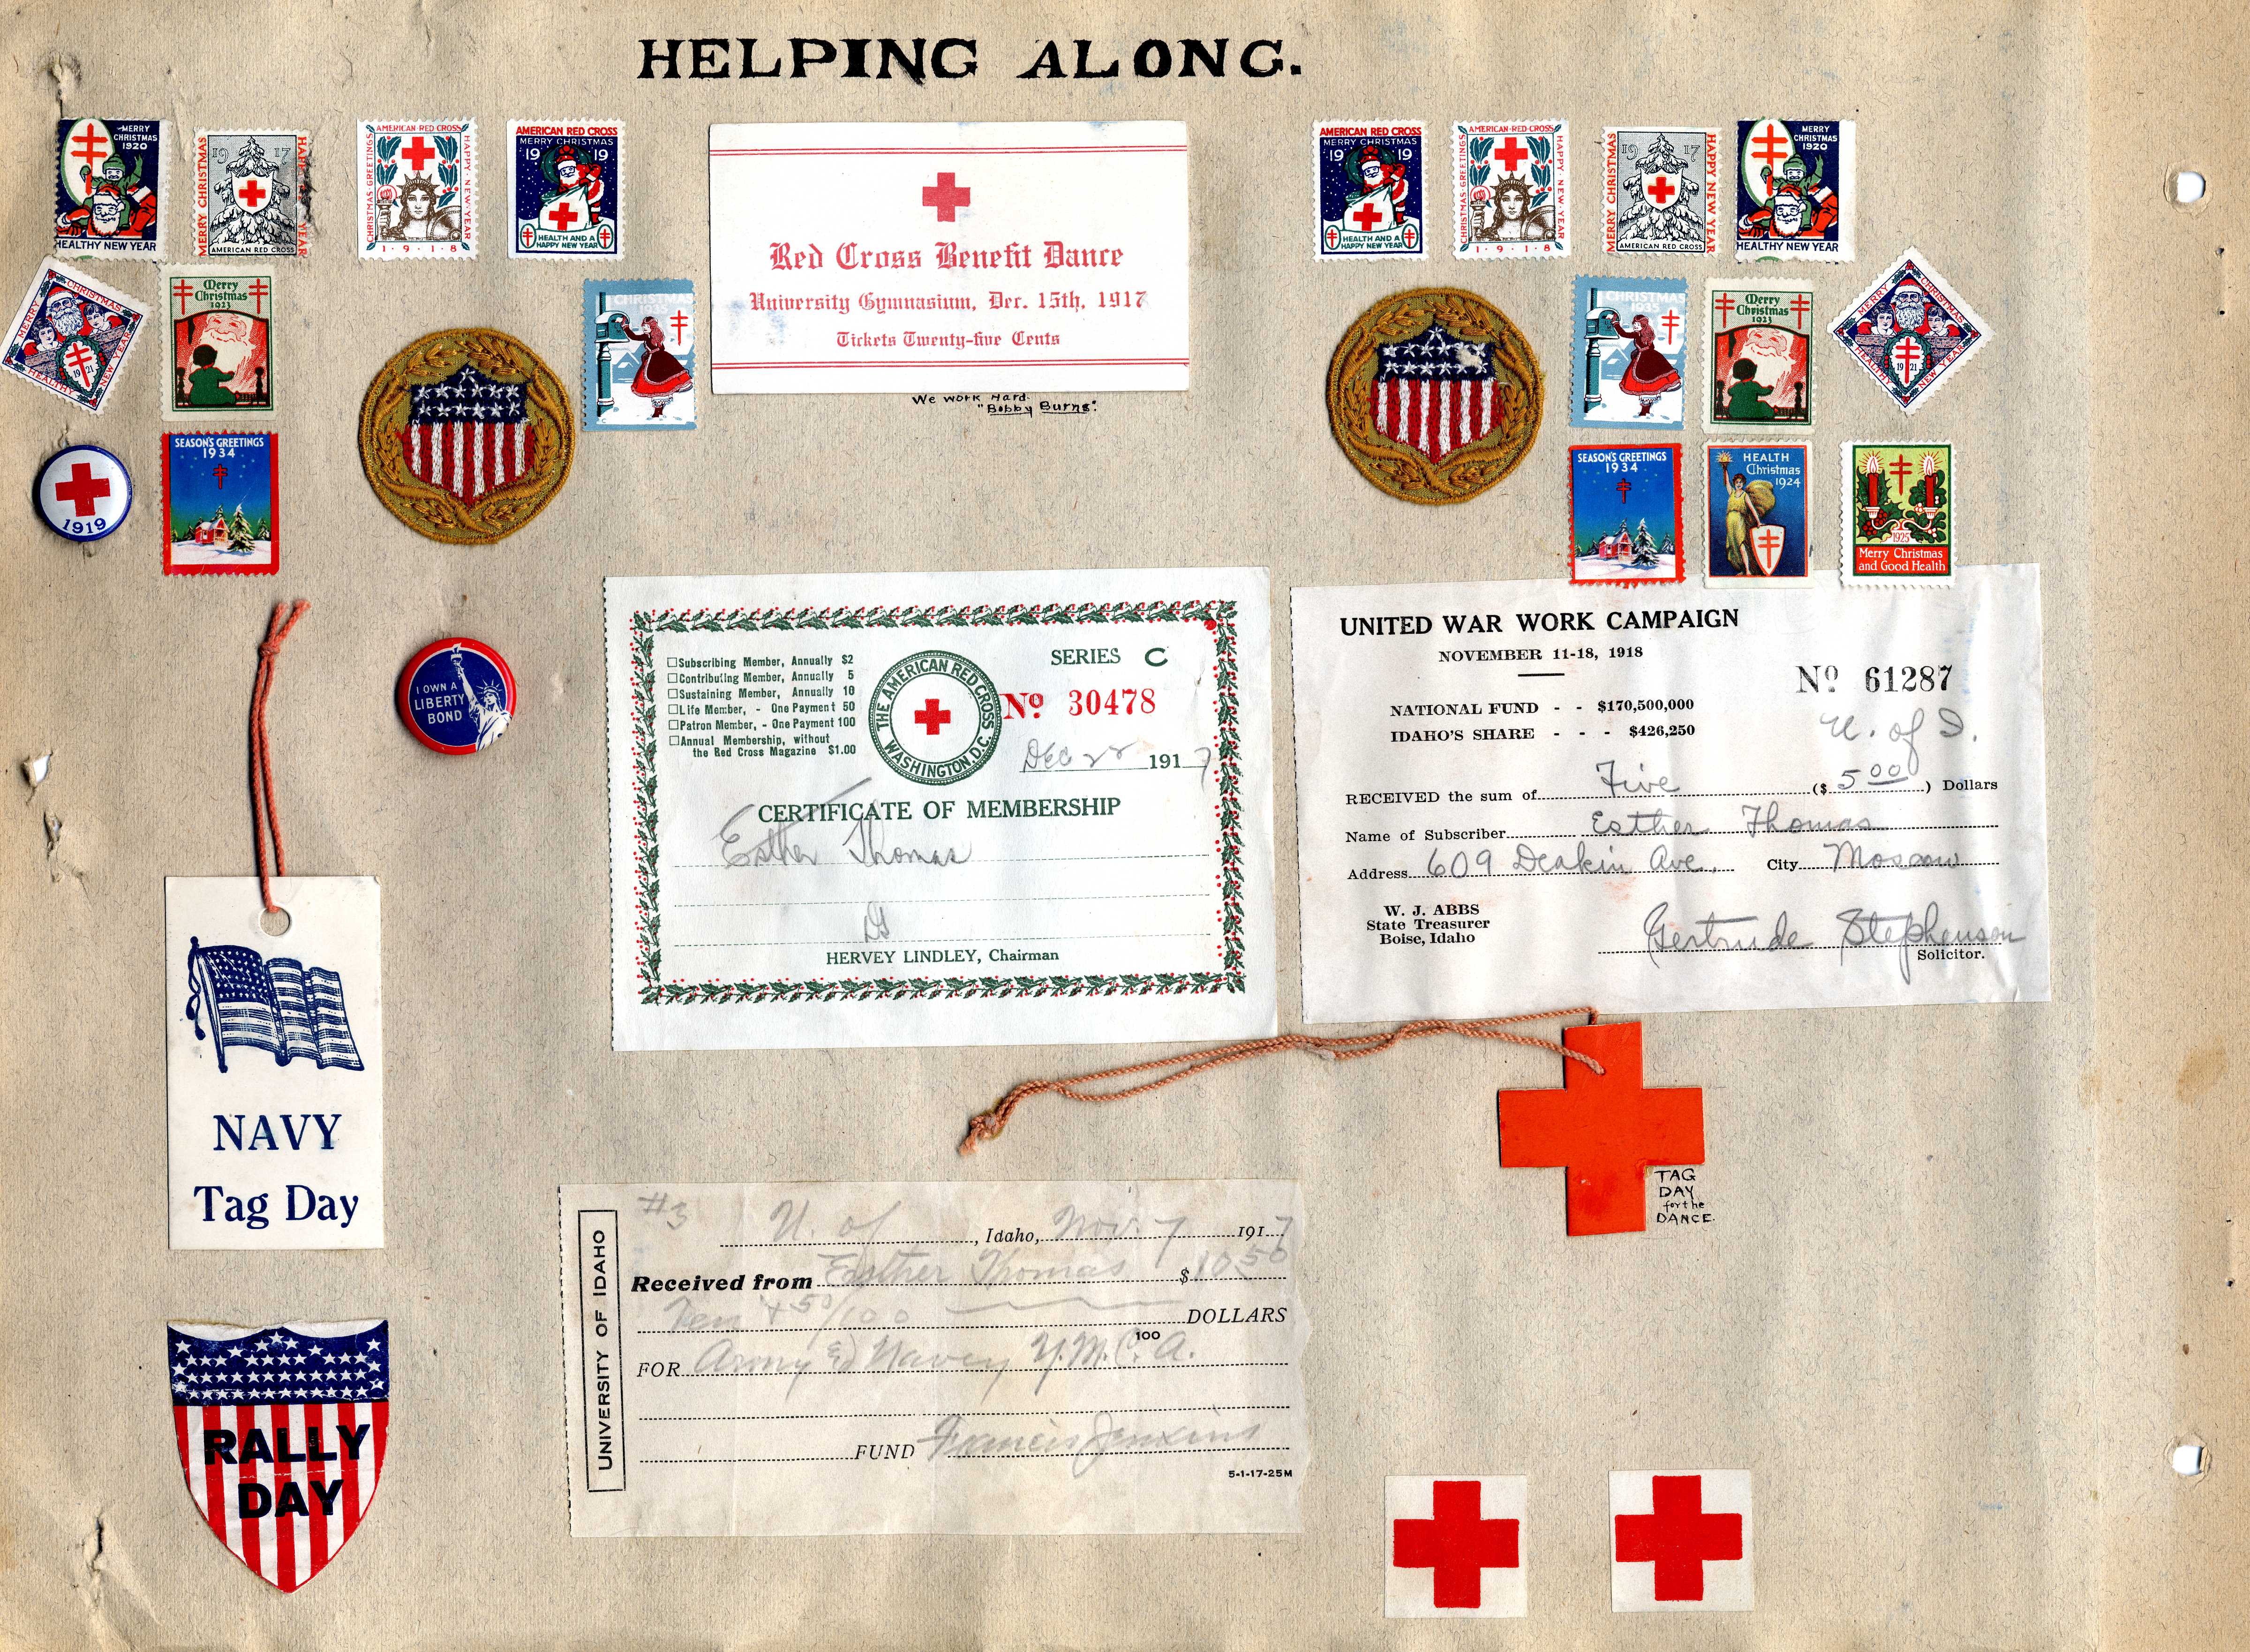 HELPING ALONG.
MERRY
CHRISTMAS
1920
HEALTHY NEW YEAR
MERRY CHRISTMAS
1917
HAPPY NEW YEAR
AMERICAN RED CROSS
AMERICAN·RED CROSS
CHRISTMAS·GREETINGS
HAPPY·NEW·YEAR
1·9·1·8
AMERICAN RED CROSS
MERRY CHRISTMAS
19 19
HEALTH AND A
HAPPY NEW YEAR
Red Cross Benefit Dance
University Gymnasium, Dec. 15th, 1917
Tickets Twenty-five Cents
We work Hard.
"Bobby Burns".
AMERICAN RED CROSS
MERRY CHRISTMAS
19 19
HEALTH AND A
HAPPY NEW YEAR
AMERICAN·RED CROSS
CHRISTMAS·GREETINGS
HAPPY·NEW·YEAR
1·9·1·8
MERRY CHRISTMAS
1917
HAPPY NEW YEAR
AMERICAN RED CROSS
MERRY
CHRISTMAS
1920
HEALTHY NEW YEAR
MERRY CHRISTMAS
1921
HEALTHY NEW YEAR
Merry
Christmas
1923
CHRISTMAS
1935
CHRISTMAS
1935
Merry
Christmas
1923
MERRY CHRISTMAS
1921
HEALTHY NEW YEAR
1919
SEASON'S GREETINGS
1934
SEASON'S GREETINGS
1934
HEALTH
Christmas
1924
1925
Merry Christmas
and Good Health
I OWN A
LIBERTY
BOND
Subscribing Member, Annually $2
Contributing Member, Annually 5
Sustaining Member, Annually 10
Life Member, - One Payment 50
Patron Member, - One Payment 100
Annual Membership, without
the Red Cross Magazine $1.00
THE AMERICAN RED CROSS
WASHINGTON, D.C.
SERIES C
No 30478
Dec 22 1917
CERTIFICATE OF MEMBERSHIP
Esther Thomas
HERVEY LINDLEY, Chairman
UNITED WAR WORK CAMPAIGN
NOVEMBER 11-18, 1918
No 61287
NATIONAL FUND - - $170,500,000
IDAHO'S SHARE - - - $426,250
U. of I.
RECEIVED the sum of Five ($ 5 00 ) Dollars
Name of Subscriber Esther Thomas
Address 609 Deakin Ave. City Moscow
W. J. ABBS
State Treasurer
Boise, Idaho
Gertrude Stephenson
Solicitor.
NAVY
Tag Day
TAG
DAY
for the
DANCE.
RALLY
DAY
UNIVERSITY OF IDAHO
#3
U. of , Idaho, Nov. 7 1917
Received from Esther Thomas $ 10.50
Ten + 50/100 DOLLARS
100
FOR Army & Navy Y.M.C.A.
FUND Francis Jenkins
5-1-17-25M